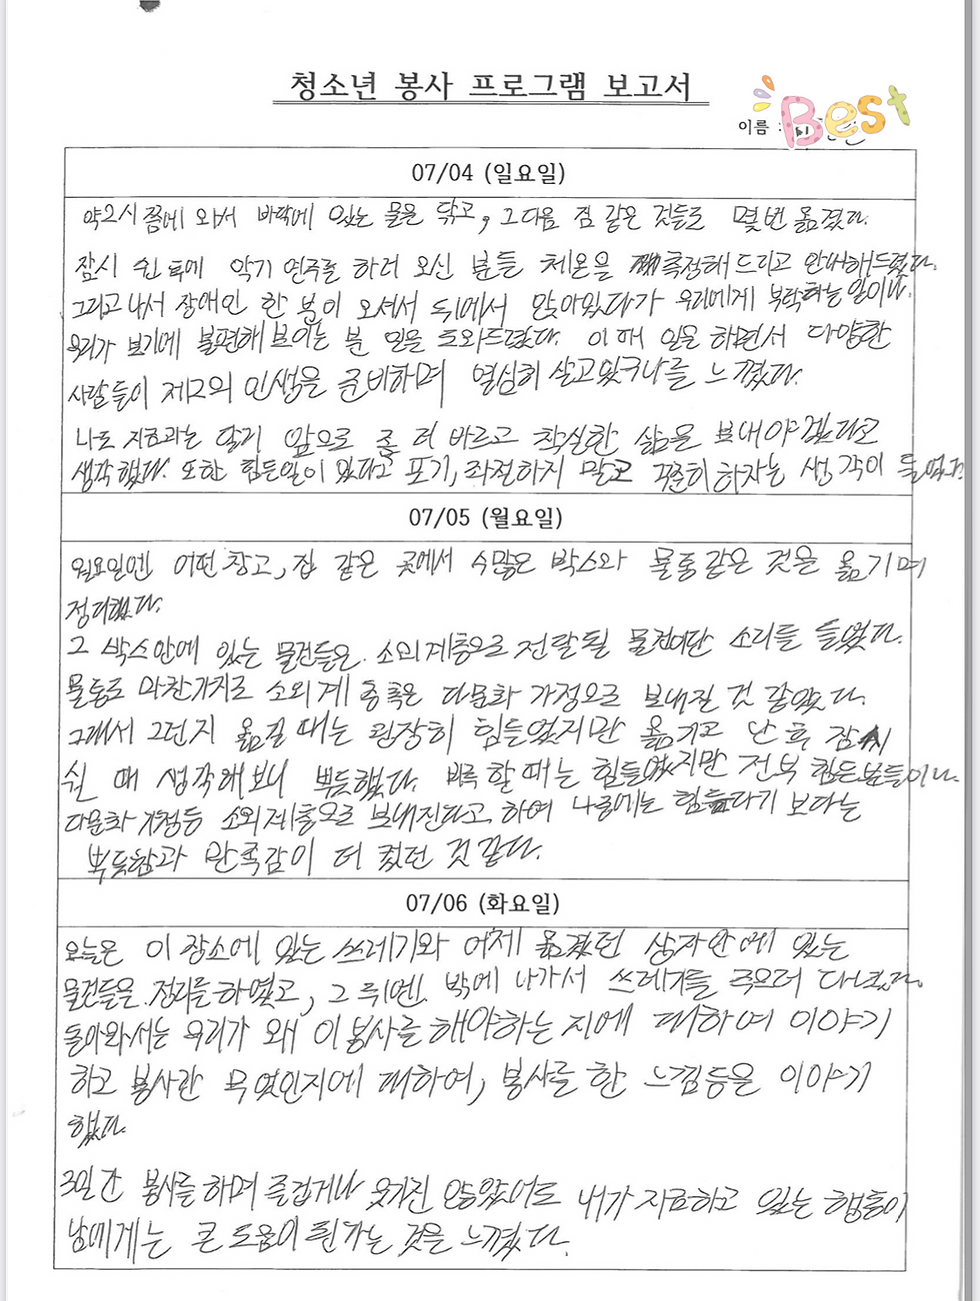 청소년 봉사 프로그램 보고서
이름 :
Best
07/04 (일요일)
약 2시 쯤에 와서 바닥에 있는 물을 닦고, 그 다음 짐 같은 것들도 몇번 옮겼다.
잠시 쉰 후에 악기 연주를 하러 오신 분들 체온을 측정해 드리고 안내해드렸다.
그리고 나서 장애인 한 분이 오셔서 뒤에서 앉아있다가 우리에게 부탁하는 일이나,
우리가 보기에 불편해 보이는 분 일을 도와드렸다. 이때 일을 하면서 다양한
사람들이 제2의 인생을 준비하며 열심히 살고있구나를 느꼈다.
나도 앞으로 좀 더 바르고 착실한 삶을 보내야겠다고
생각했다. 또한 힘든일이 있다고 포기, 좌절하지 말고 꾸준히 하자는 생각이 들었다.
07/05 (월요일)
월요일엔 어떤 창고, 집 같은 곳에서 수많은 박스와 물통같은 것을 옮기며
정리했다.
그 박스안에 있는 물건들은 소외계층으로 전달될 물건이란 소리를 들었다.
물통도 마찬가지로 소외계층 혹은 다문화 가정으로 보내진 것 같았다.
그래서 그런지 옮길 때는 굉장히 힘들었지만 옮기고 난 후 잠시
쉴 때 생각해보니 뿌듯했다. 비록 할때는 힘들었지만 전부 힘든분들이나
다문화 가정등 소외계층으로 보내진다고 하여 나중에는 힘들다기 보다는
뿌듯함과 만족감이 더 컸던 것 같다.
07/06 (화요일)
오늘은 이 장소에 있는 쓰레기와 어제 옮겼던 상자안에 있는
물건들을 정리를 하였고, 그 뒤엔 밖에 나가서 쓰레기를 주으러 다녔다.
돌아와서는 우리가 왜 이 봉사를 해야하는 지에 대하여 이야기
하고 봉사란 무엇인지에 대하여, 봉사를 한 느낌등을 이야기
했다.
3일간 봉사를 하며 즐겁거나 웃기진 않았어도 내가 하고 있는 행동이
남에게는 큰 도움이 된다는 것을 느꼈다.